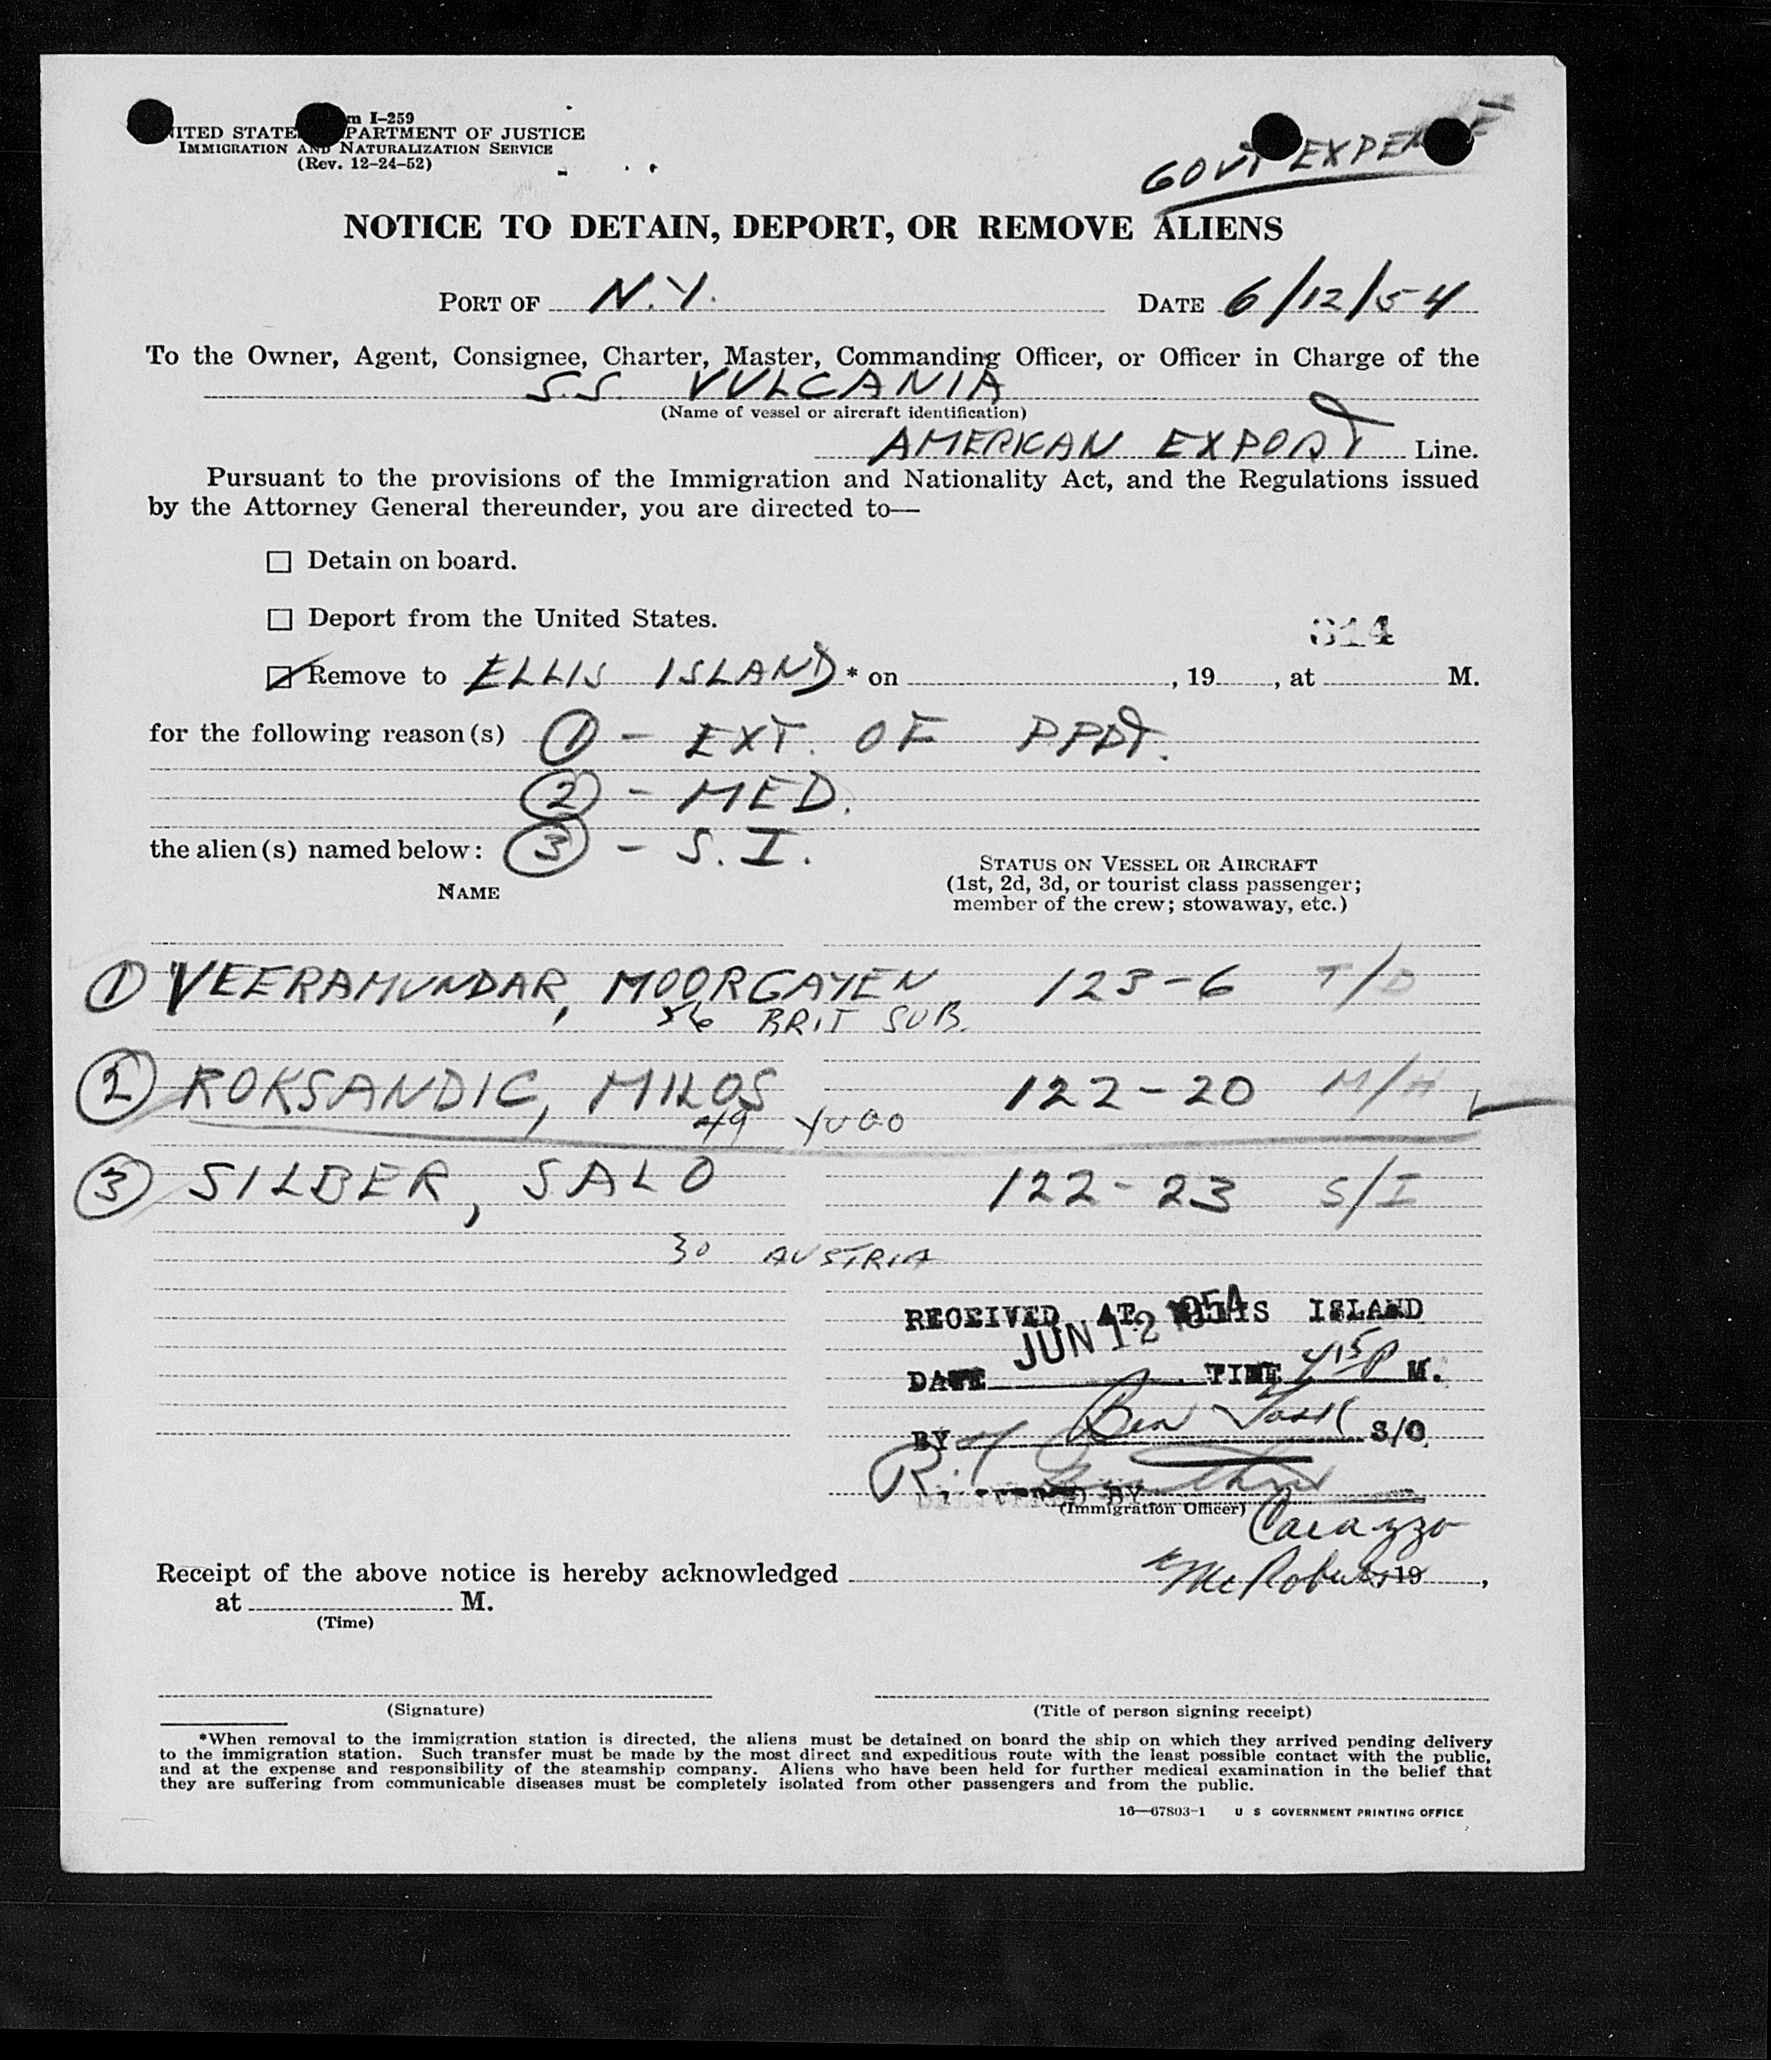 m I-259
NITED STATE PARTMENT OF JUSTICE
IMMIGRATION AND NATURALIZATION SERVICE
(Rev. 12-24-52)
GOVT EXPENSE
NOTICE TO DETAIN, DEPORT, OR REMOVE ALIENS
PORT OF N.Y. DATE 6/12/54
To the Owner, Agent, Consignee, Charter, Master, Commanding Officer, or Officer in Charge of the
S.S. VULCANIA
(Name of vessel or aircraft identification)
AMERICAN EXPORT Line.
Pursuant to the provisions of the Immigration and Nationality Act, and the Regulations issued
by the Attorney General thereunder, you are directed to—
Detain on board.
Deport from the United States.
314
Remove to ELLIS ISLAND * on , 19 , at M.
for the following reason(s) 1 - EXT. OF PPDT.
2 - MED.
the alien(s) named below: 3 - S.I.
NAME
STATUS ON VESSEL OR AIRCRAFT
(1st, 2d, 3d, or tourist class passenger;
member of the crew; stowaway, etc.)
1 VEERAMUNDAR, MOORGAYEN 123-6 T/D
56 BRIT SUB.
2 ROKSANDIC, MILOS 122-20 M/H
49 YUGO
3 SILBER, SALO 122-23 S/I
30 AUSTRIA
RECEIVED AT ELLIS ISLAND
JUN 12 1954
DATE TIME 4 15 P M.
BY Ben S/O
R.
DELIVERED BY
(Immigration Officer)
Carazzo
McRoberts
Receipt of the above notice is hereby acknowledged , 19 ,
at M.
(Time)
(Signature) (Title of person signing receipt)
*When removal to the immigration station is directed, the aliens must be detained on board the ship on which they arrived pending delivery
to the immigration station. Such transfer must be made by the most direct and expeditious route with the least possible contact with the public,
and at the expense and responsibility of the steamship company. Aliens who have been held for further medical examination in the belief that
they are suffering from communicable diseases must be completely isolated from other passengers and from the public.
16—67803-1 U S GOVERNMENT PRINTING OFFICE